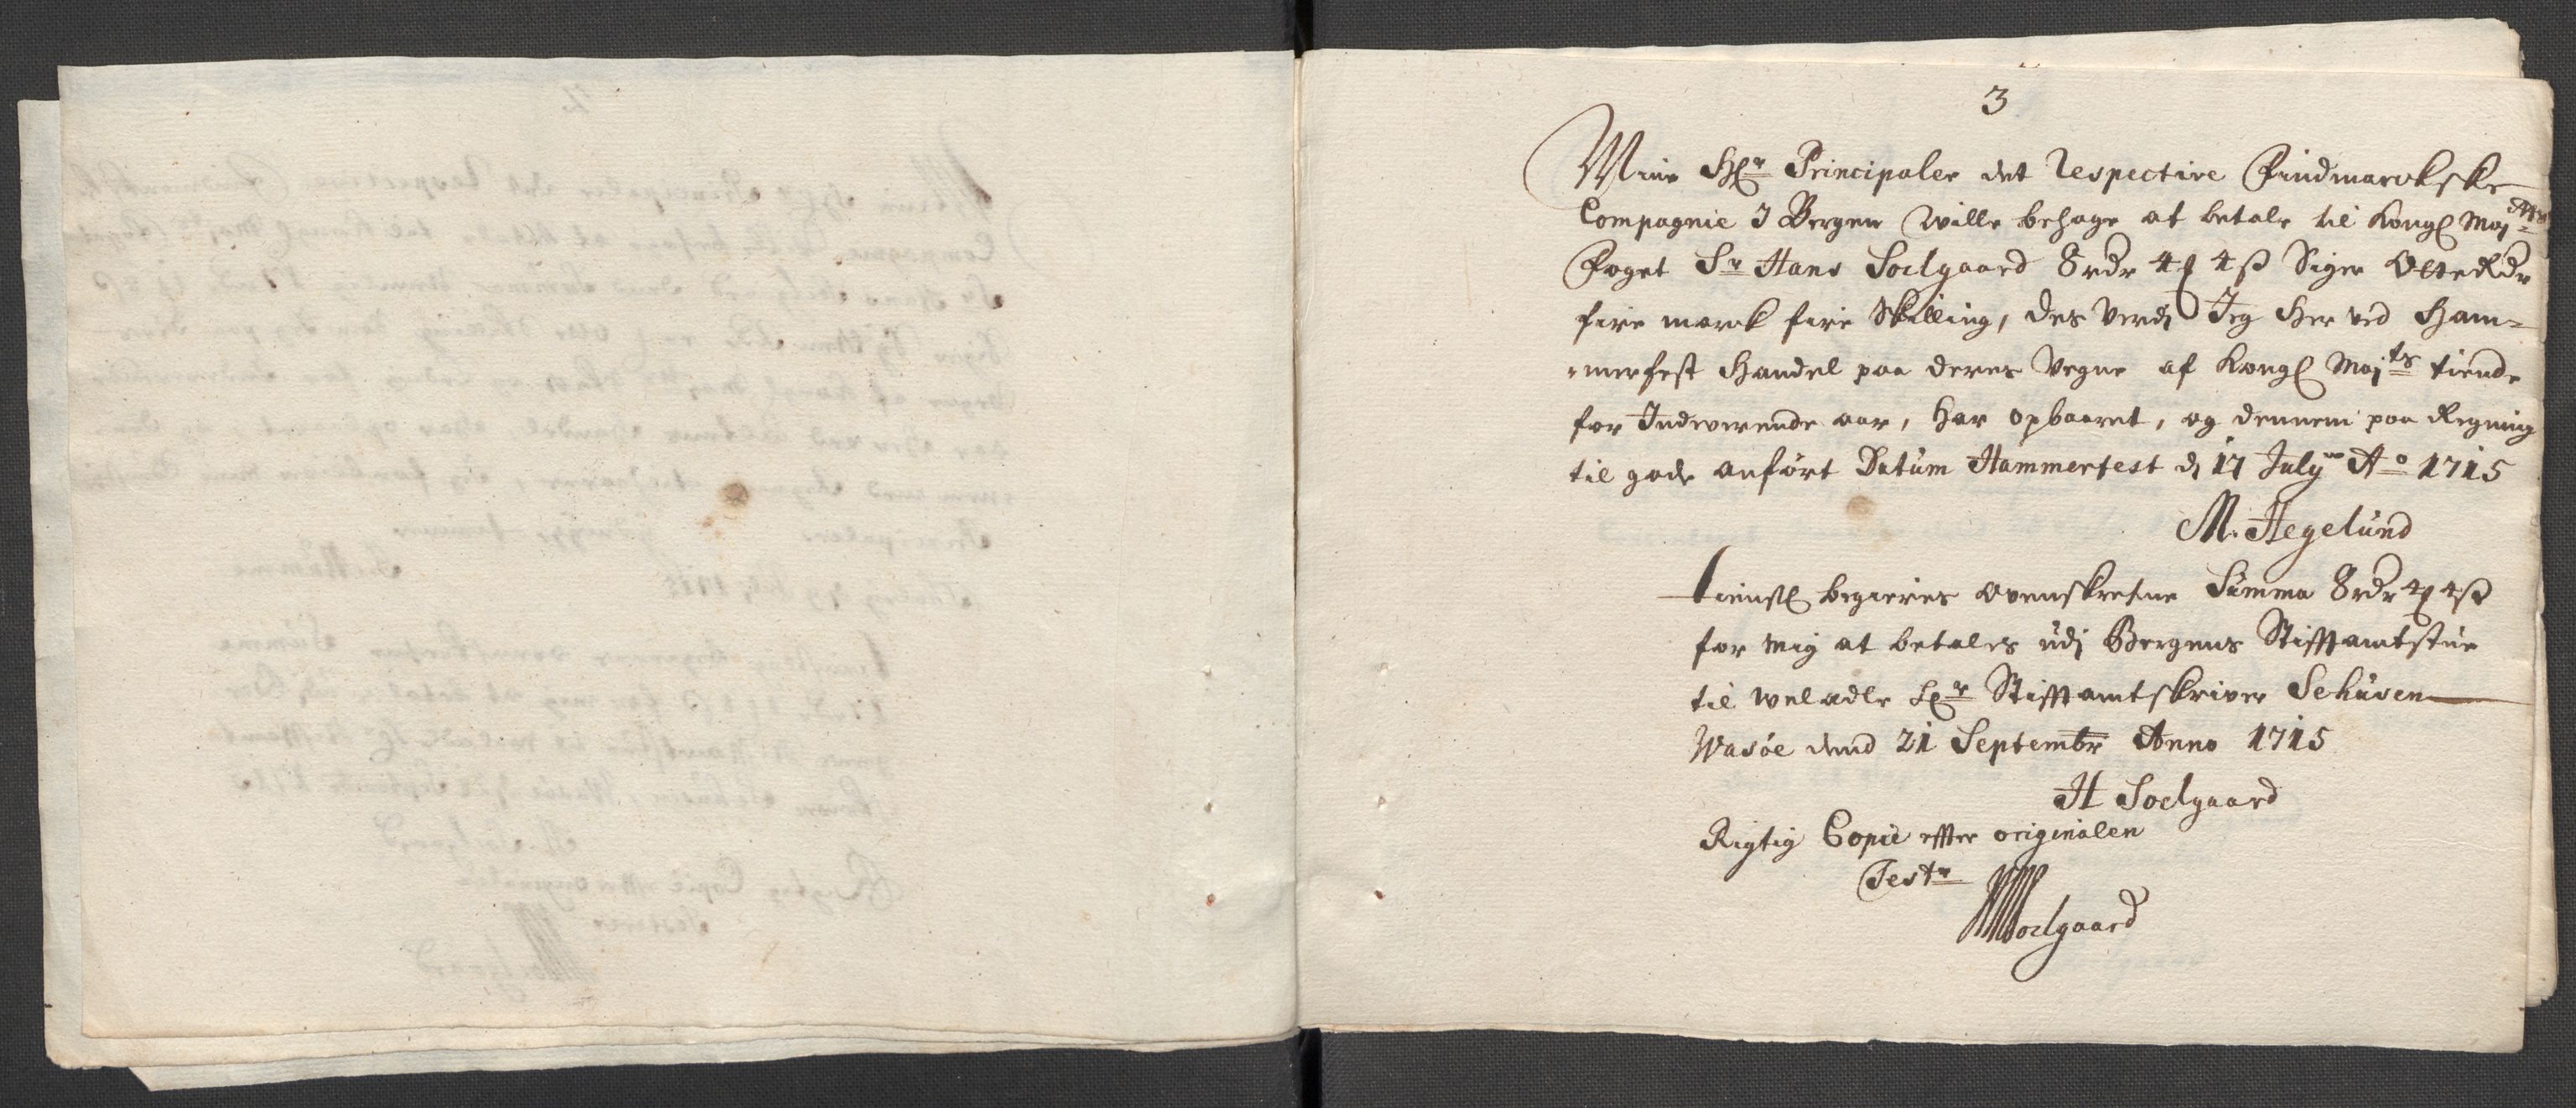 3
Mine Hr Principaler det Respective Findmarckske
Compagnie I Bergen Wille behage at betale til Kongl Maj
Foget Sr Hans Soelgaard 8 rdr 4 4 ß Siger Otte Rdr
fire marck fire Skilling, des Verdj Jeg Her ved Ham=
merfest Handel paa deres Vegne af Kongl Majts tiende
for Indeverende aar, har opbaaret, og dennem paa Regning
til gode anført Datum Hammerfest dj 17 July Ao 1715
M. Hegelund
tienstl begieres ovenskrefne Summa 8 rdr 4 4 ß
for mig at betales udj Bergens Stifftamtstue
til Weladle Hr Stifftamtskriver Schusen
Wasöe dend 21 Septembr Anno 1715
H Soelgaard
Rigtig Copie effter originalen
Test
Soelgaard